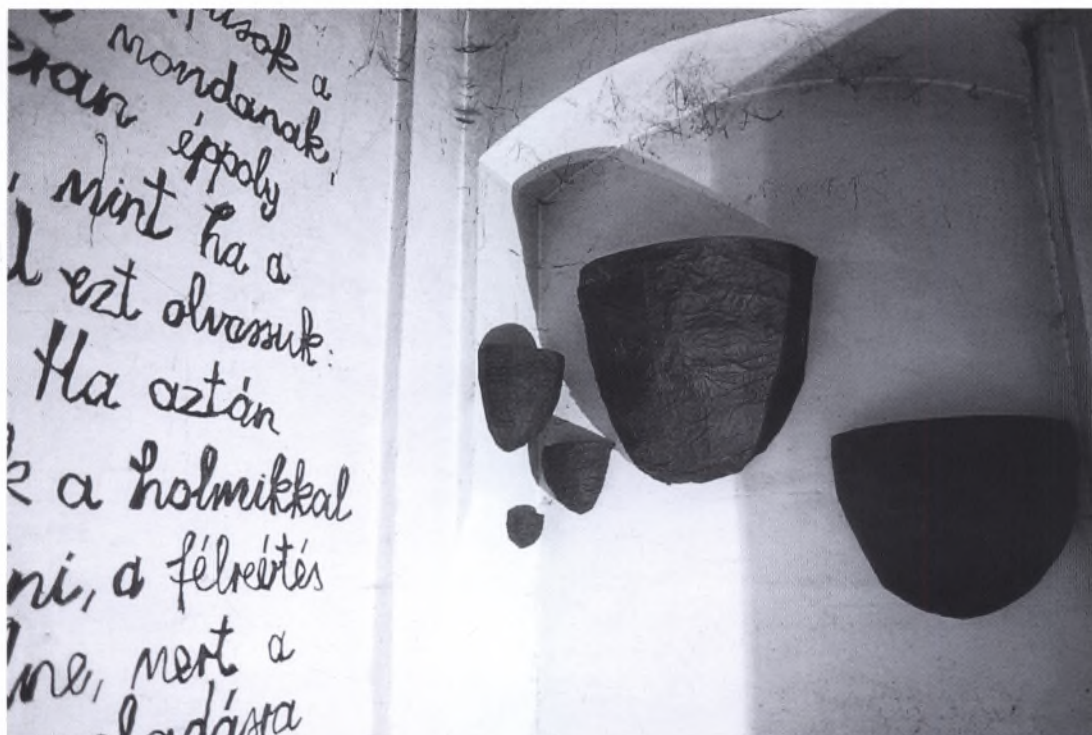 a
mondanak,
éppoly
mint ha a
ezt olvassuk:
Ha aztán
a holmikkal
ni, a félreértés
lne, mert a